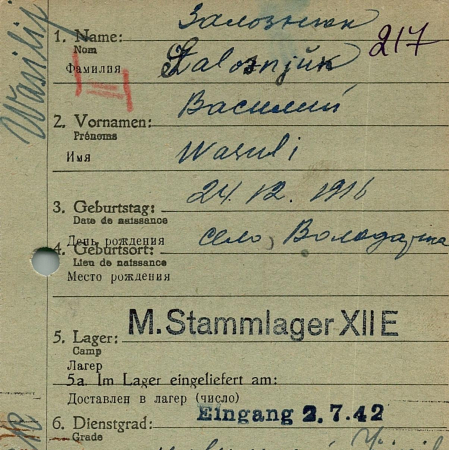 Залознюк
1. Name:
Nom
217
Фамилия
Zalosnjuk
Василий
2. Vornamen:
Prénoms
Имя
Wasuli
Wasilij
24.12.1916
3. Geburtstag:
Date de naissance
День рождения
село, Володарка
4. Geburtsort:
Lieu de naissance
Место рождения
M. Stammlager XII E
5. Lager:
Camp
Лагерь
5a. Im Lager eingeliefert am:
Доставлен в лагер (число)
Eingang 2.7.42
6. Dienstgrad:
Grade